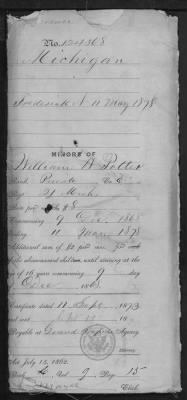 No. 124368
Michigan
Frederick N 11 May 1878
MINOR OF
William A Potter
Rank Private Co. E
Reg. 21 Mich
Rate per month $8
Commencing 9 Dec 1868
Ending 11 May 1878
Additional sum of $2 per
of the abovenamed children, until arriving at the
age of 16 years commencing 9 day
of Dec 1868
Certificate dated 11 Sept 1873
Payable at Grand Rapids Agency
Act July 14, 1862.
Book 6 Vol 9 Page 15
Clerk